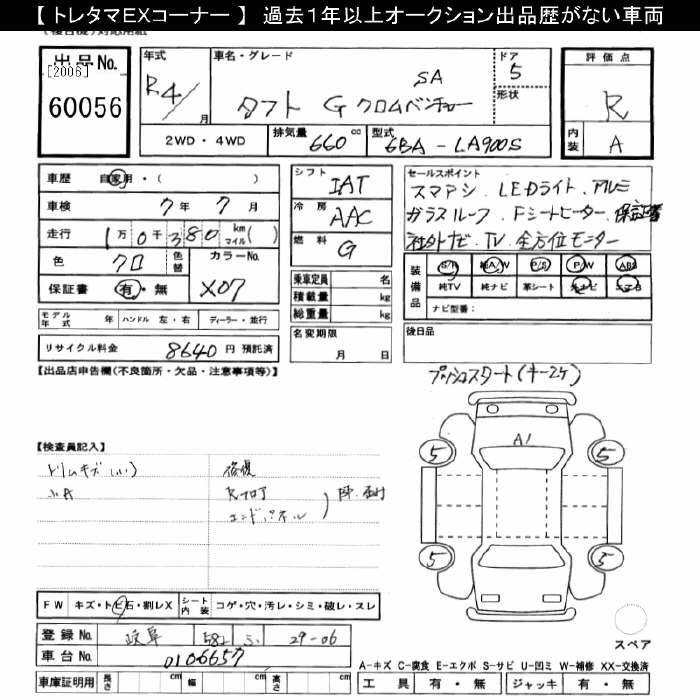 【 トレタマEXコーナー 】 過去1年以上オークション出品歴がない車両
出品No.
[2006]
60056
年式
R4/月
車名・グレード
SA
タフト G クロムベンチャー
ドア
5
形状
評価点
R
内装
A
2WD・4WD
排気量 660 cc
型式 6BA - LA900S
車歴 自家用・( )
車検 7年 7月
走行 1万0千380 km マイル( )
色 クロ
色替
カラーNo. X07
保証書 有・無
シフト IAT
冷房 AAC
燃料 G
乗車定員 名
積載量 kg
総重量 kg
セールスポイント
スマアシ. LEDライト. アルミ
ガラスルーフ. Fシートヒーター. 保証書
社外ナビ. TV. 全方位モニター
装備品
S/R 純A/W P/S P/W ABS
純TV 純ナビ 革シート 純ナビ エアB
ナビ型番:
モデル年式 年 ハンドル 左・右 ディーラー・並行
名変期限
月 日
後日品
リサイクル料金 8640 円 預託済
【出品店申告欄(不良箇所・欠品・注意事項等)】
プッシュスタート(キー2ケ)
【検査員記入】
トリムキズ(小)
小A
修復
Rフロア
エンドパネル
A1
5
5
5
5
FW キズ・トビ石・割レX
シート内装 コゲ・穴・汚レ・シミ・破レ・スレ
登録No. 岐阜 582 ふ 29-06
車台No. 0106657
スペア
A-キズ C-腐食 E-エクボ S-サビ U-凹ミ W-補修 XX-交換済
車庫証明用 長さ cm 幅 cm 高さ cm
工具 有・無 ジャッキ 有・無